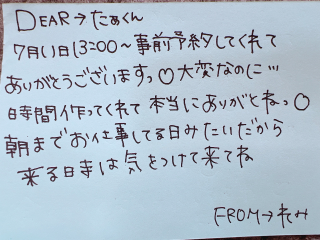 DEAR→たぁくん
7月11日13:00〜事前予約してくれて
ありがとうございますっ♡大変なのに…
時間作ってくれて本当にありがとねっ♡
朝までお仕事してる日みたいだから
来る時は気をつけて来てね
FROM→れみ